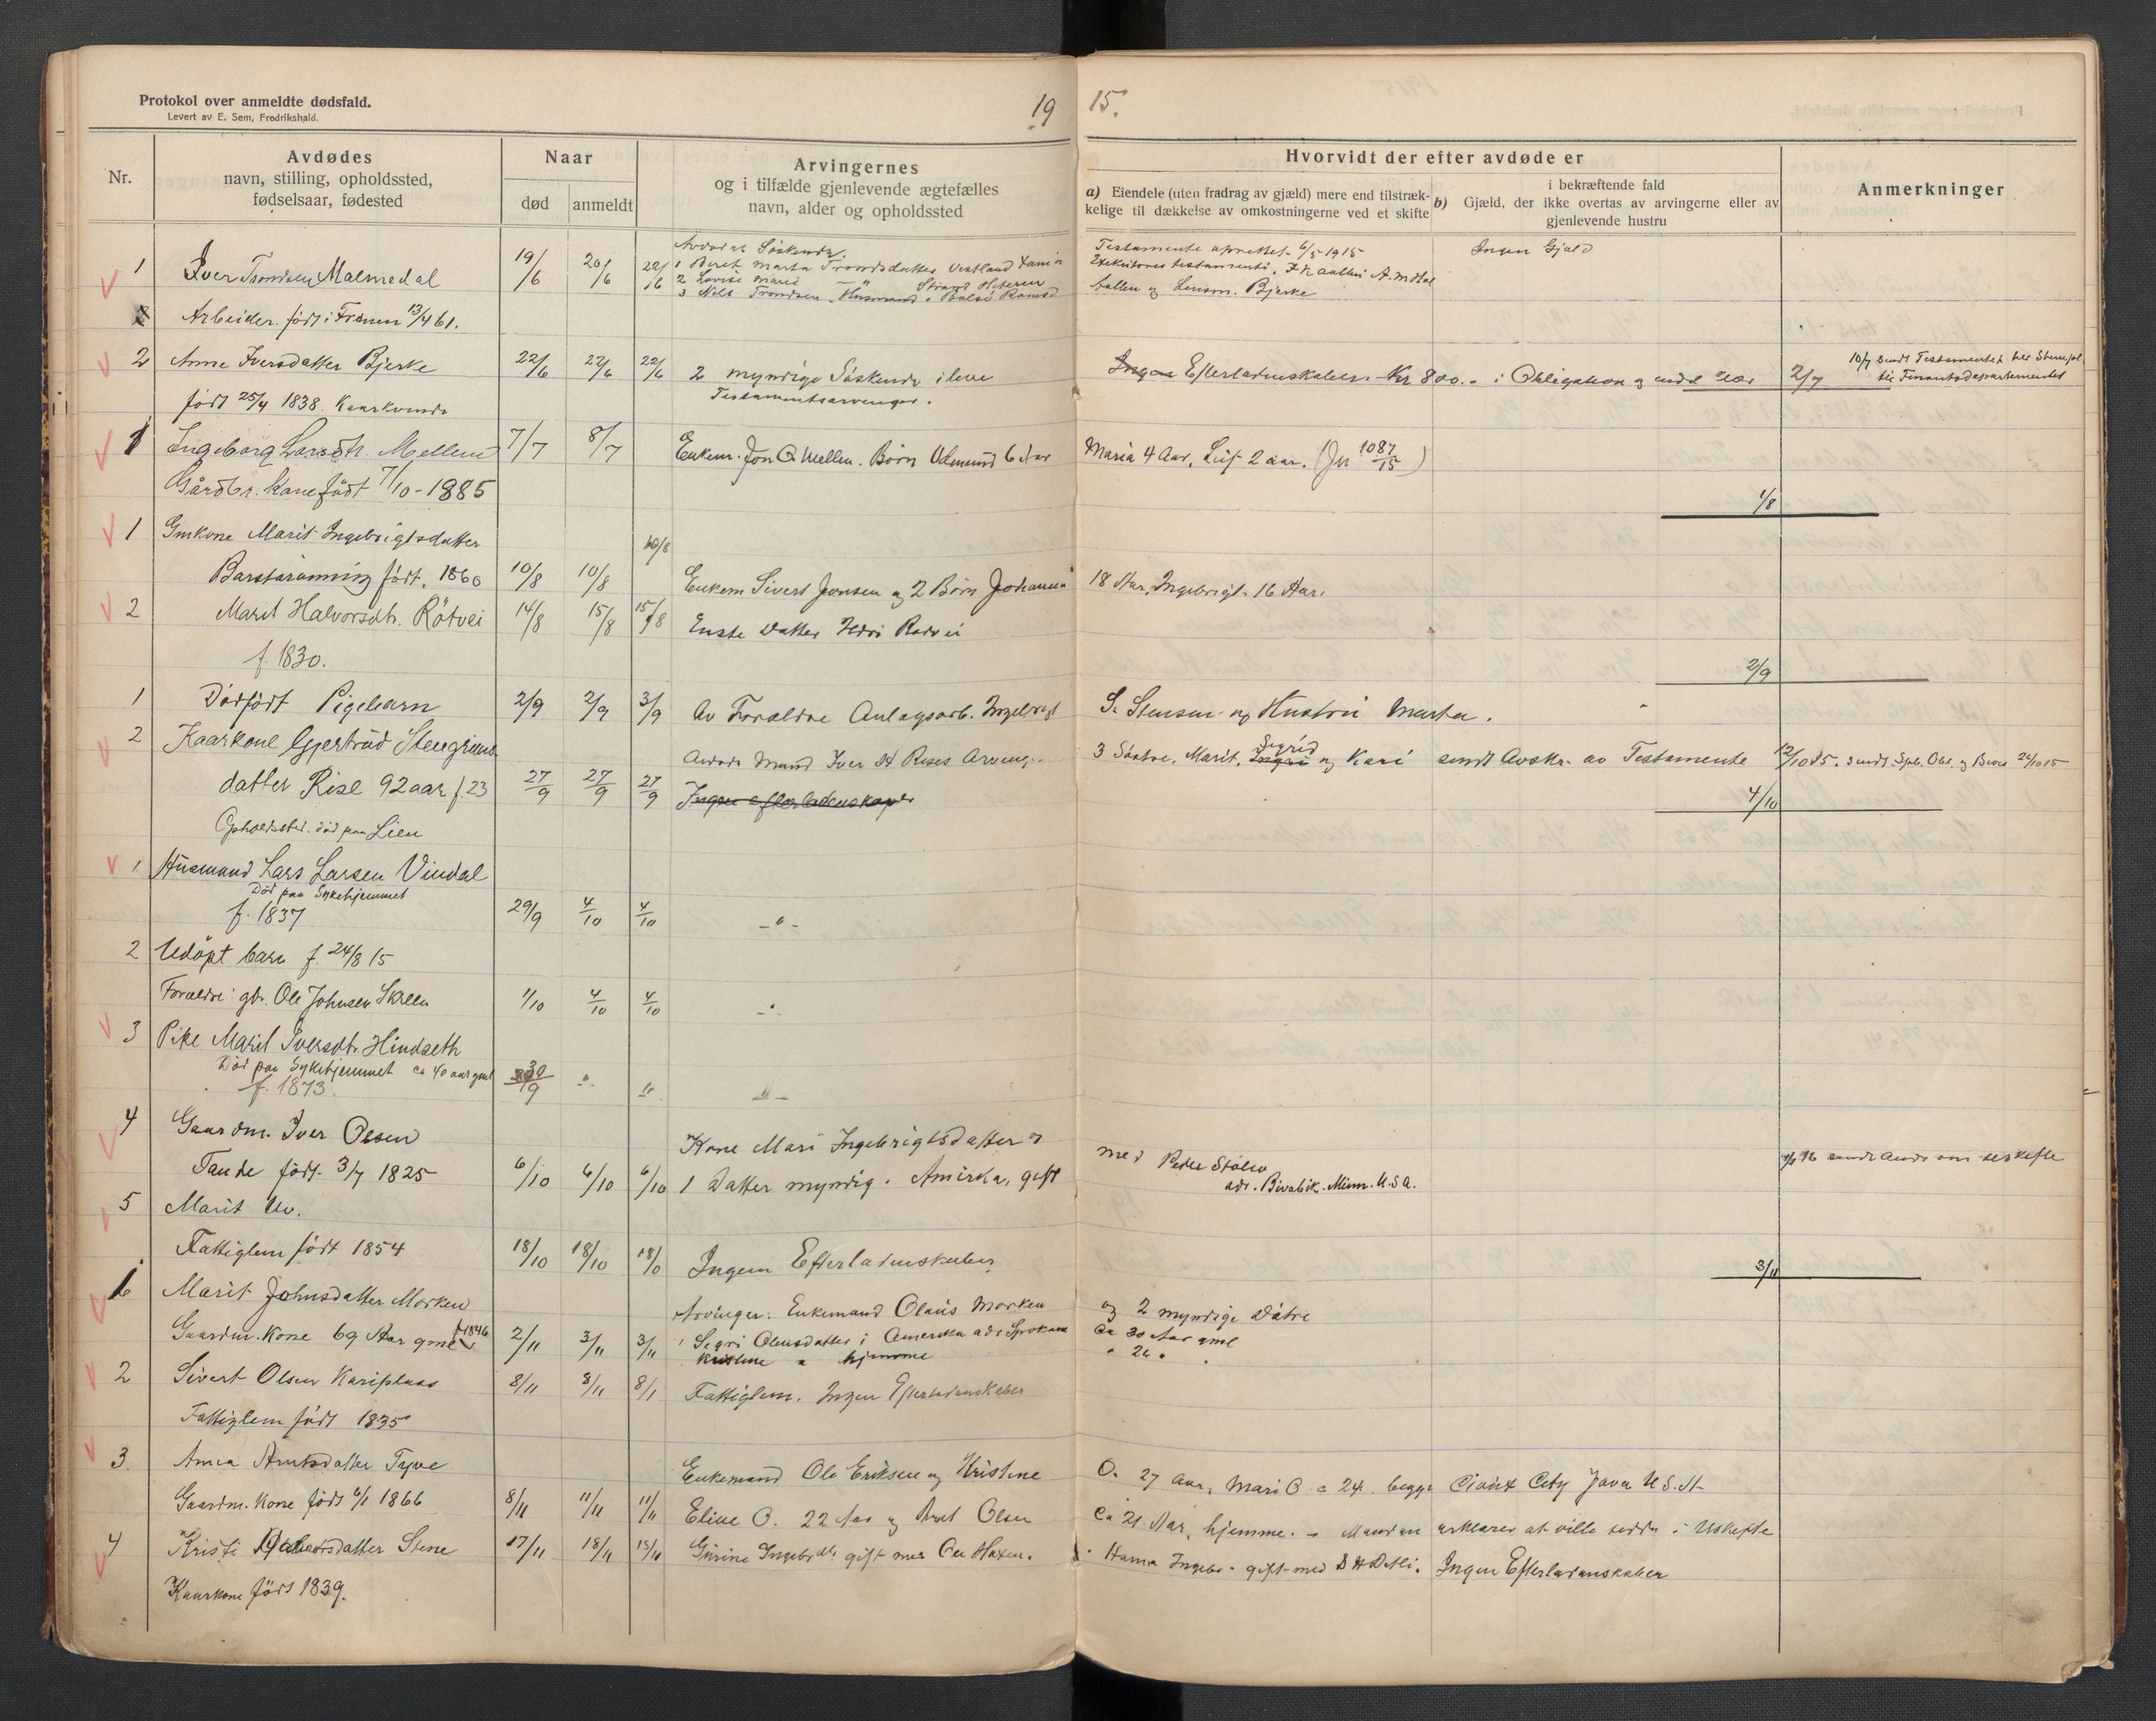 Protokol over anmeldte dødsfald.
Levert av E. Sem, Fredrikshald.
19 15.
Nr.
Avdødes
navn, stilling, opholdssted,
fødselsaar, fødested
Naar
død
anmeldt
Arvingernes
og i tilfælde gjenlevende ægtefælles
navn, alder og opholdssted
Hvorvidt der efter avdøde er
a) Eiendele (uten fradrag av gjæld) mere end tilstræk-
kelige til dækkelse av omkostningerne ved et skifte
i bekræftende fald
b) Gjæld, der ikke overtas av arvingerne eller av
gjenlevende hustru
Anmerkninger
1 Iver Trondsen Malmedal 19/6 20/6 22/6
Arbeider. født i Frænen 13/4 61.
Avdødes Søskende
1 Beret Marta Trondsdatter Vestland
2 Lovise Marie " Strand Hiteren
3 Nils Trondsen, Husmand, Bolsø Romsd
Testamente oprettet 6/5 1915
Ingen Gjæld
og Lensm. Bjerke
2 Anne Iversdatter Bjerke 22/6 22/6 22/6 2 myndige Søskende i live
født 25/4 1838 Kaarkvinde Testamentsarvinger.
Efterladenskaber. Kr 800.- i Obligation og 2/7
10/7 sendt Testamentet
til Finantsdepartementet
1 Ingeborg Larsdtr. Mellem 7/7 8/7 Enkem. Jon O Mellem. Børn Odmund 6 Aar Maria 4 Aar, Leif 2 aar. (Jn 1087/15)
Gårdbr. kone født 7/10-1885
1/8
1 Gmkone Marit Ingebrigtsdatter 10/8
født. 1860 10/8 10/8 Enkem Sivert Jonsen og 2 Børn Johanna 18 Aar, Ingebrigt 16 Aar.
2 Marit Halvorsdtr. Rötvei 14/8 15/8 15/8 Eneste Datter
f. 1830.
2/9
1 Dødfødt Pigebarn 2/9 2/9 3/9 Av Forældre Anlægsarb. Ingebrigt S. Stensen og Hustru Marta.
2 Kaarkone Gjertrud Steingrims
Avdøde Mand Iver Rises 3 Søstre, Marit, Ingri Sigrid og Kari sendt Avskr. av Testamente 12/10 15.
datter Rise 92 aar f. 23 27/9 27/9 27/9 Ingen efterladenskaper
4/10
Opholdssted. død paa Lien
1 Husmand Lars Larsen Vindal
Død paa Sykehjemmet
f. 1837 29/9 4/10 4/10 -"-
2 Udøpt barn f. 24/8 15
Forældre: gbr. Ole Johnsen Skrem 1/10 4/10 4/10 -"-
3 Pike Marit Iversdt. Hindseth
Død paa Sykehjemmet ca 40 aar gml 30/9 " " -"-
f. 1873.
4 Gaardm. Iver Olsen Kone Mari Ingebrigtsdatter og
Tande født 3/7 1825 6/10 6/10 6/10 1 Datter myndig. Amerika, gift med Peder Stølen
adr. Bivabik. Minn. U.S.A.
5 Marit Uv.
Fattiglem født 1854 18/10 18/10 18/10 Ingen Efterladenskaber
3/11
1 Marit Johnsdatter Morken Arvinger: Enkemand Olaus Morken og 2 myndige Døtre
Gaardm. Kone 69 Aar gml f 1846 2/11 3/11 3/11 1 Segri Olausdatter i Amerika adr Spokane ca 30 Aar gml
Kristine " hjemme " 26 "
2 Sivert Olsen Kariplass 8/11 8/11 8/1 Fattiglem. Ingen Efterladenskaber
Fattiglem født 1835
3. Anna Arntsdatter Tyve Enkemand Ole Eriksen og Kristine O. 27 Aar, Mari O " 24. begge City Java U.S.A
Gaardm. Kone født 6/1 1866 8/11 11/11 11/11 Eline O. 22 Aar og Arnt Olsen ca 21 Aar, hjemme. - Manden erklærer at ville sidde i Uskifte
4 Kristi datter Stene 17/11 18/11 18/11 Gurine Ingebrdtr gift med Ole Haxen. Hanna Ingebr. gift med Ingen Efterladenskaber
Kaarkone født 1839.